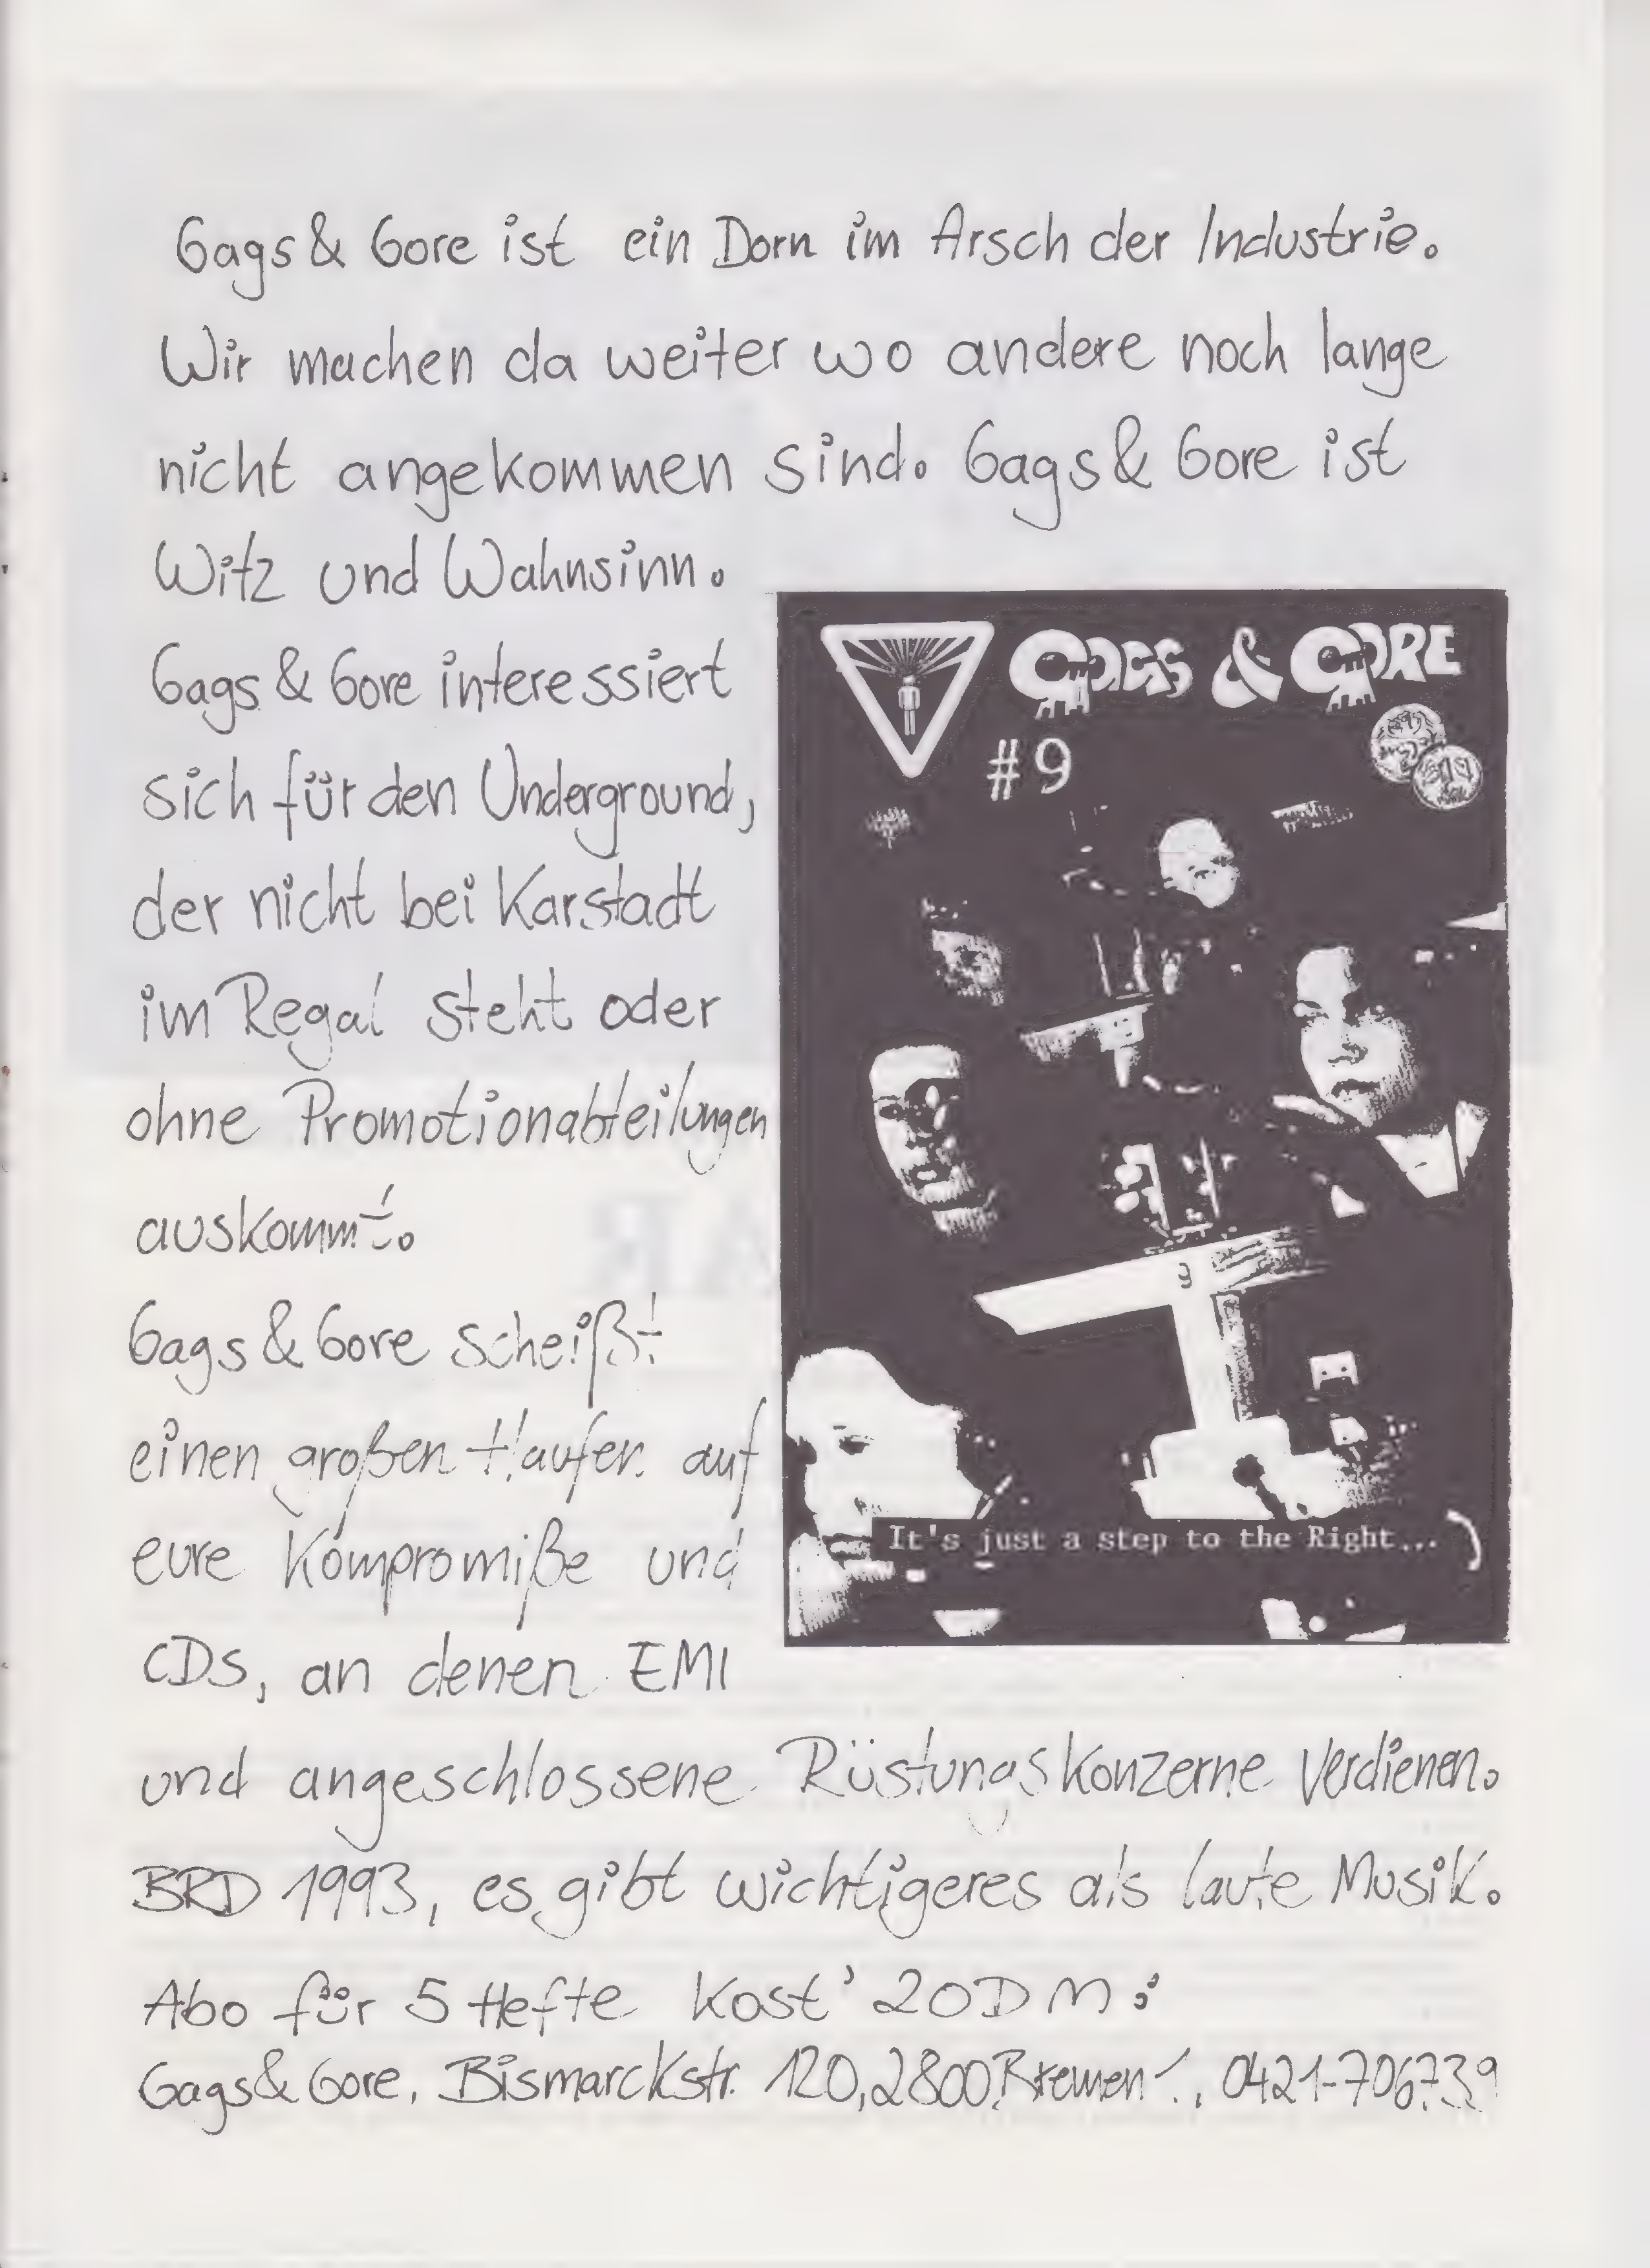 Gags & Gore ist ein Dorn im Arsch der Industrie.
Wir machen da weiter wo andere noch lange
nicht angekommen sind. Gags & Gore ist
Witz und Wahnsinn.
Gags & Gore interessiert
sich für den Underground,
der nicht bei Karstadt
im Regal steht oder
ohne Promotionabteilungen
auskommt.
Gags & Gore scheißt
einen großen Haufen auf
eure Kompromiße und
CDs, an denen EMI
und angeschlossene Rüstungskonzerne verdienen.
BRD 1993, es gibt wichtigeres als laute Musik.
Abo für 5 Hefte Kost' 20DM:
Gags & Gore, Bismarckstr. 120, 2800 Bremen 1, 0421-706739
GAGS & GORE
#9
9
It's just a step to the Right...